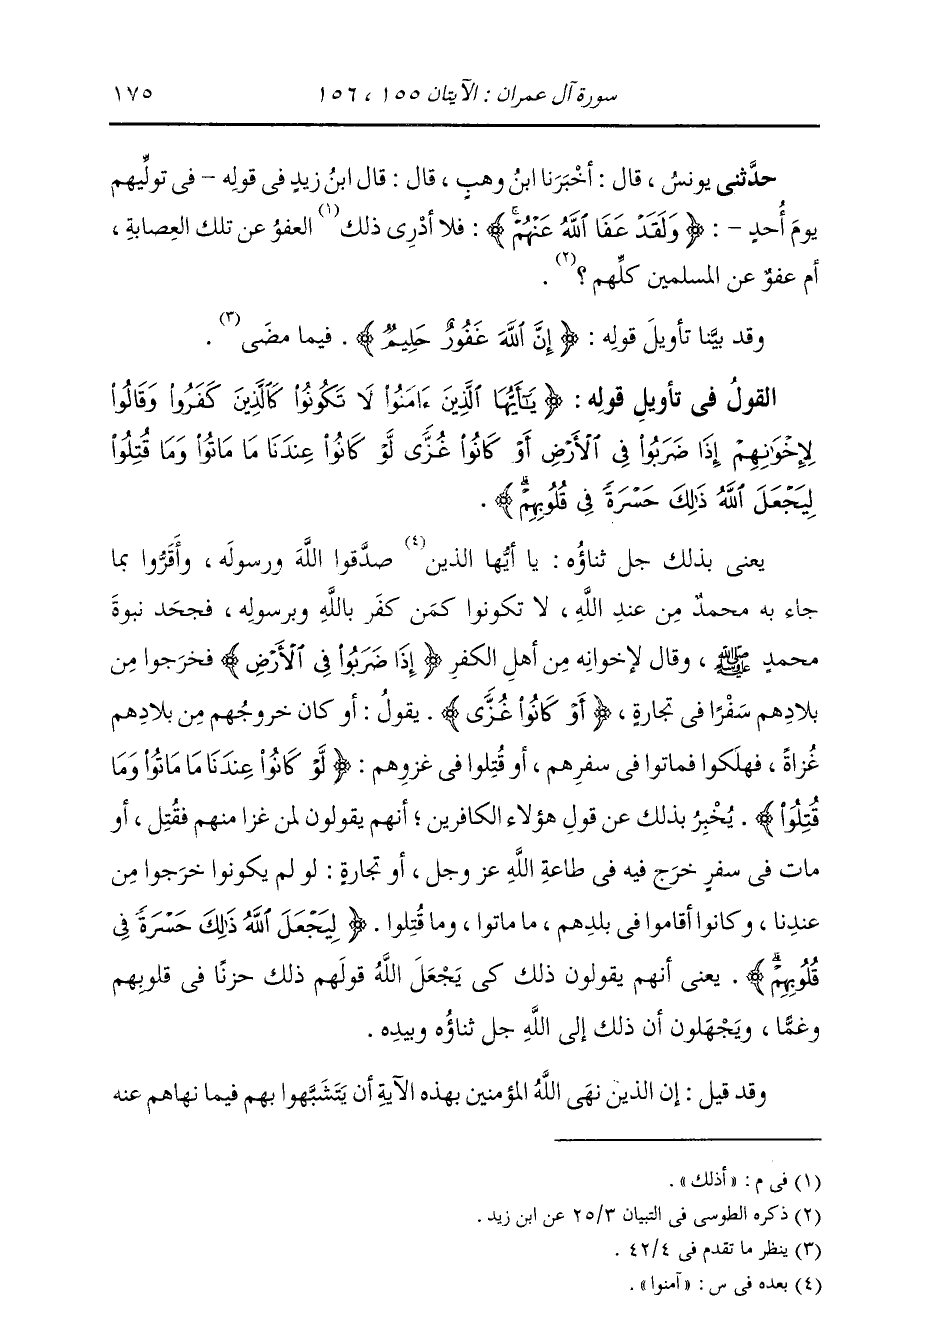 سورة آل عمران : الآيتان ١٥٥ ، ١٥٦ ١٧٥
حدَّثنى يونسُ ، قال : أخْبَرَنا ابنُ وهبٍ ، قال : قال ابنُ زيدٍ فى قولِه – فى تولِّيهم
يومَ أُحدٍ – : ﴿ وَلَقَدْ عَفَا ٱللَّهُ عَنْهُمْۚ ﴾ : فلا أدْرِى ذلك (١) العفوُ عن تلك العِصابةِ ،
أم عفوٌ عن المسلمين كلِّهم ؟ (٢) .
وقد بيَّنا تأويلَ قولِه : ﴿ إِنَّ ٱللَّهَ غَفُورٌ حَلِيمٌ ﴾ . فيما مضَى (٣) .
القولُ فى تأويلِ قولِه : ﴿ يَـٰٓأَيُّهَا ٱلَّذِينَ ءَامَنُوا۟ لَا تَكُونُوا۟ كَٱلَّذِينَ كَفَرُوا۟ وَقَالُوا۟
لِإِخْوَٰنِهِمْ إِذَا ضَرَبُوا۟ فِى ٱلْأَرْضِ أَوْ كَانُوا۟ غُزًّى لَّوْ كَانُوا۟ عِندَنَا مَا مَاتُوا۟ وَمَا قُتِلُوا۟
لِيَجْعَلَ ٱللَّهُ ذَٰلِكَ حَسْرَةً فِى قُلُوبِهِمْۗ ﴾ .
يعنى بذلك جل ثناؤُه : يا أيُّها الذين (٤) صدَّقوا اللَّهَ ورسولَه ، وأَقَرُّوا بما
جاء به محمدٌ مِن عندِ اللَّهِ ، لا تكونوا كمَن كفَر باللَّهِ وبرسولِه ، فجحَد نبوةَ
محمدٍ ﷺ ، وقال لإخوانِه مِن أهلِ الكفرِ ﴿ إِذَا ضَرَبُوا۟ فِى ٱلْأَرْضِ ﴾ فخرَجوا مِن
بلادِهم سَفْرًا فى تجارةٍ ، ﴿ أَوْ كَانُوا۟ غُزًّى ﴾ . يقولُ : أو كان خروجُهم مِن بلادِهم
غُزاةً ، فهلَكوا فماتوا فى سفرِهم ، أو قُتِلوا فى غزوِهم : ﴿ لَّوْ كَانُوا۟ عِندَنَا مَا مَاتُوا۟ وَمَا
قُتِلُوا۟ ﴾ . يُخْبِرُ بذلك عن قولِ هؤلاء الكافرين ؛ أنهم يقولون لمن غزا منهم فقُتِل ، أو
مات فى سفرٍ خرَج فيه فى طاعةِ اللَّهِ عز وجل ، أو تجارةٍ : لو لم يكونوا خرَجوا مِن
عندِنا ، وكانوا أقاموا فى بلدِهم ، ما ماتوا ، وما قُتِلوا . ﴿ لِيَجْعَلَ ٱللَّهُ ذَٰلِكَ حَسْرَةً فِى
قُلُوبِهِمْۗ ﴾ . يعنى أنهم يقولون ذلك كى يَجْعَلَ اللَّهُ قولَهم ذلك حزنًا فى قلوبِهم
وغمًّا ، ويَجْهَلون أن ذلك إلى اللَّهِ جل ثناؤُه وبيدِه .
وقد قيل : إن الذين نهَى اللَّهُ المؤمنين بهذه الآيةِ أن يَتَشَبَّهوا بهم فيما نهاهم عنه
(١) فى م : «أذلك» .
(٢) ذكره الطوسى فى التبيان ٢٥/٣ عن ابن زيد .
(٣) ينظر ما تقدم فى ٤٢/٤ .
(٤) بعده فى س : «آمنوا» .